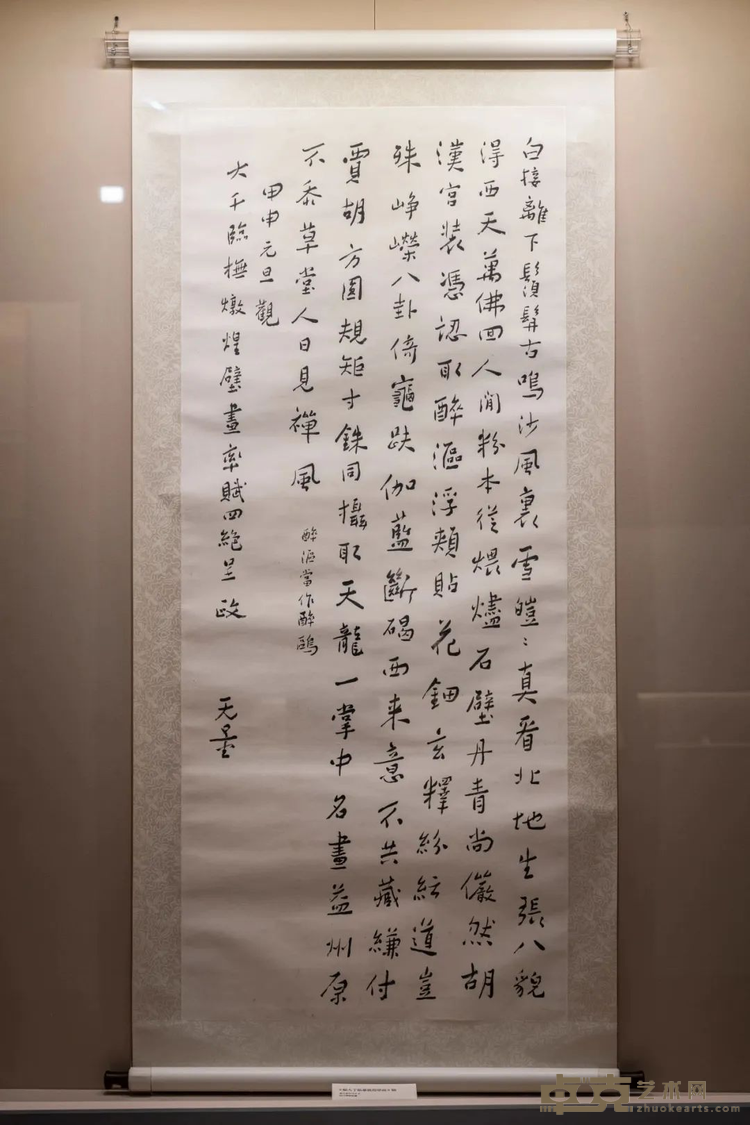 白接離下鬚髯古鳴沙風裏雪皚〻真看北地生張八貌
得西天萬佛回人間粉本從煨燼石壁丹青尚儼然胡
漢宮裝憑認取醉漚浮頰貼花鈿玄釋紛紜道豈
殊崢嶸八卦倚龜趺伽藍斷碣西来意不共藏縑付
賈胡方圓規矩寸銖同攝取天龍一掌中名畫益州原
不忝草堂人日見禪風 醉漚當作醉鷗
甲申元旦觀
大千臨撫燉煌壁畫率賦四絕呈政 无量
卓克艺术网
zhuokearts.com